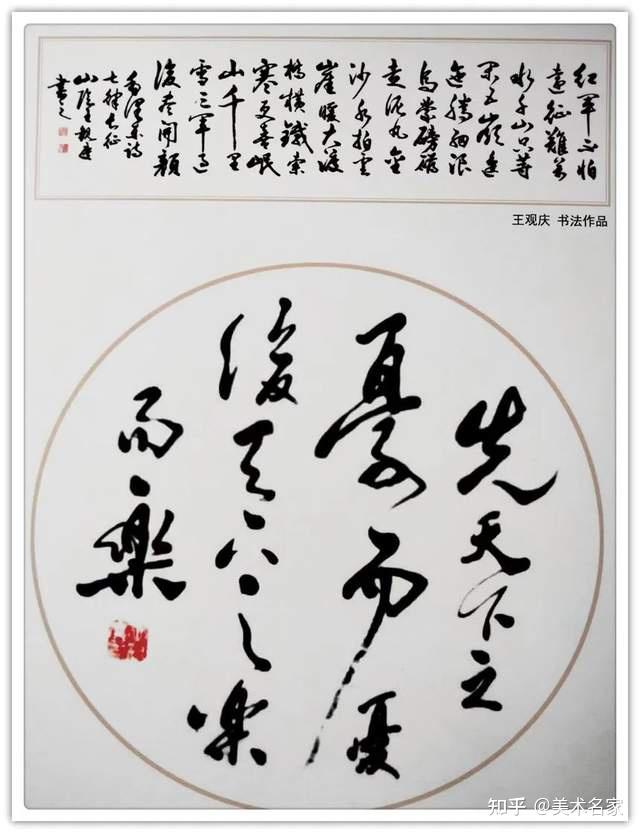 紅軍不怕
遠征難萬
水千山只等
閒五嶺逶
迤騰細浪
烏蒙磅礴
走泥丸金
沙水拍雲
崖暖大渡
橋橫鐵索
寒更喜岷
山千里
雪三軍過
後盡開顏
毛澤東詩
七律長征
山陰王觀慶
書之
王观庆 书法作品
先天下之
憂而憂
後天下之樂
而樂
知乎 @美术名家